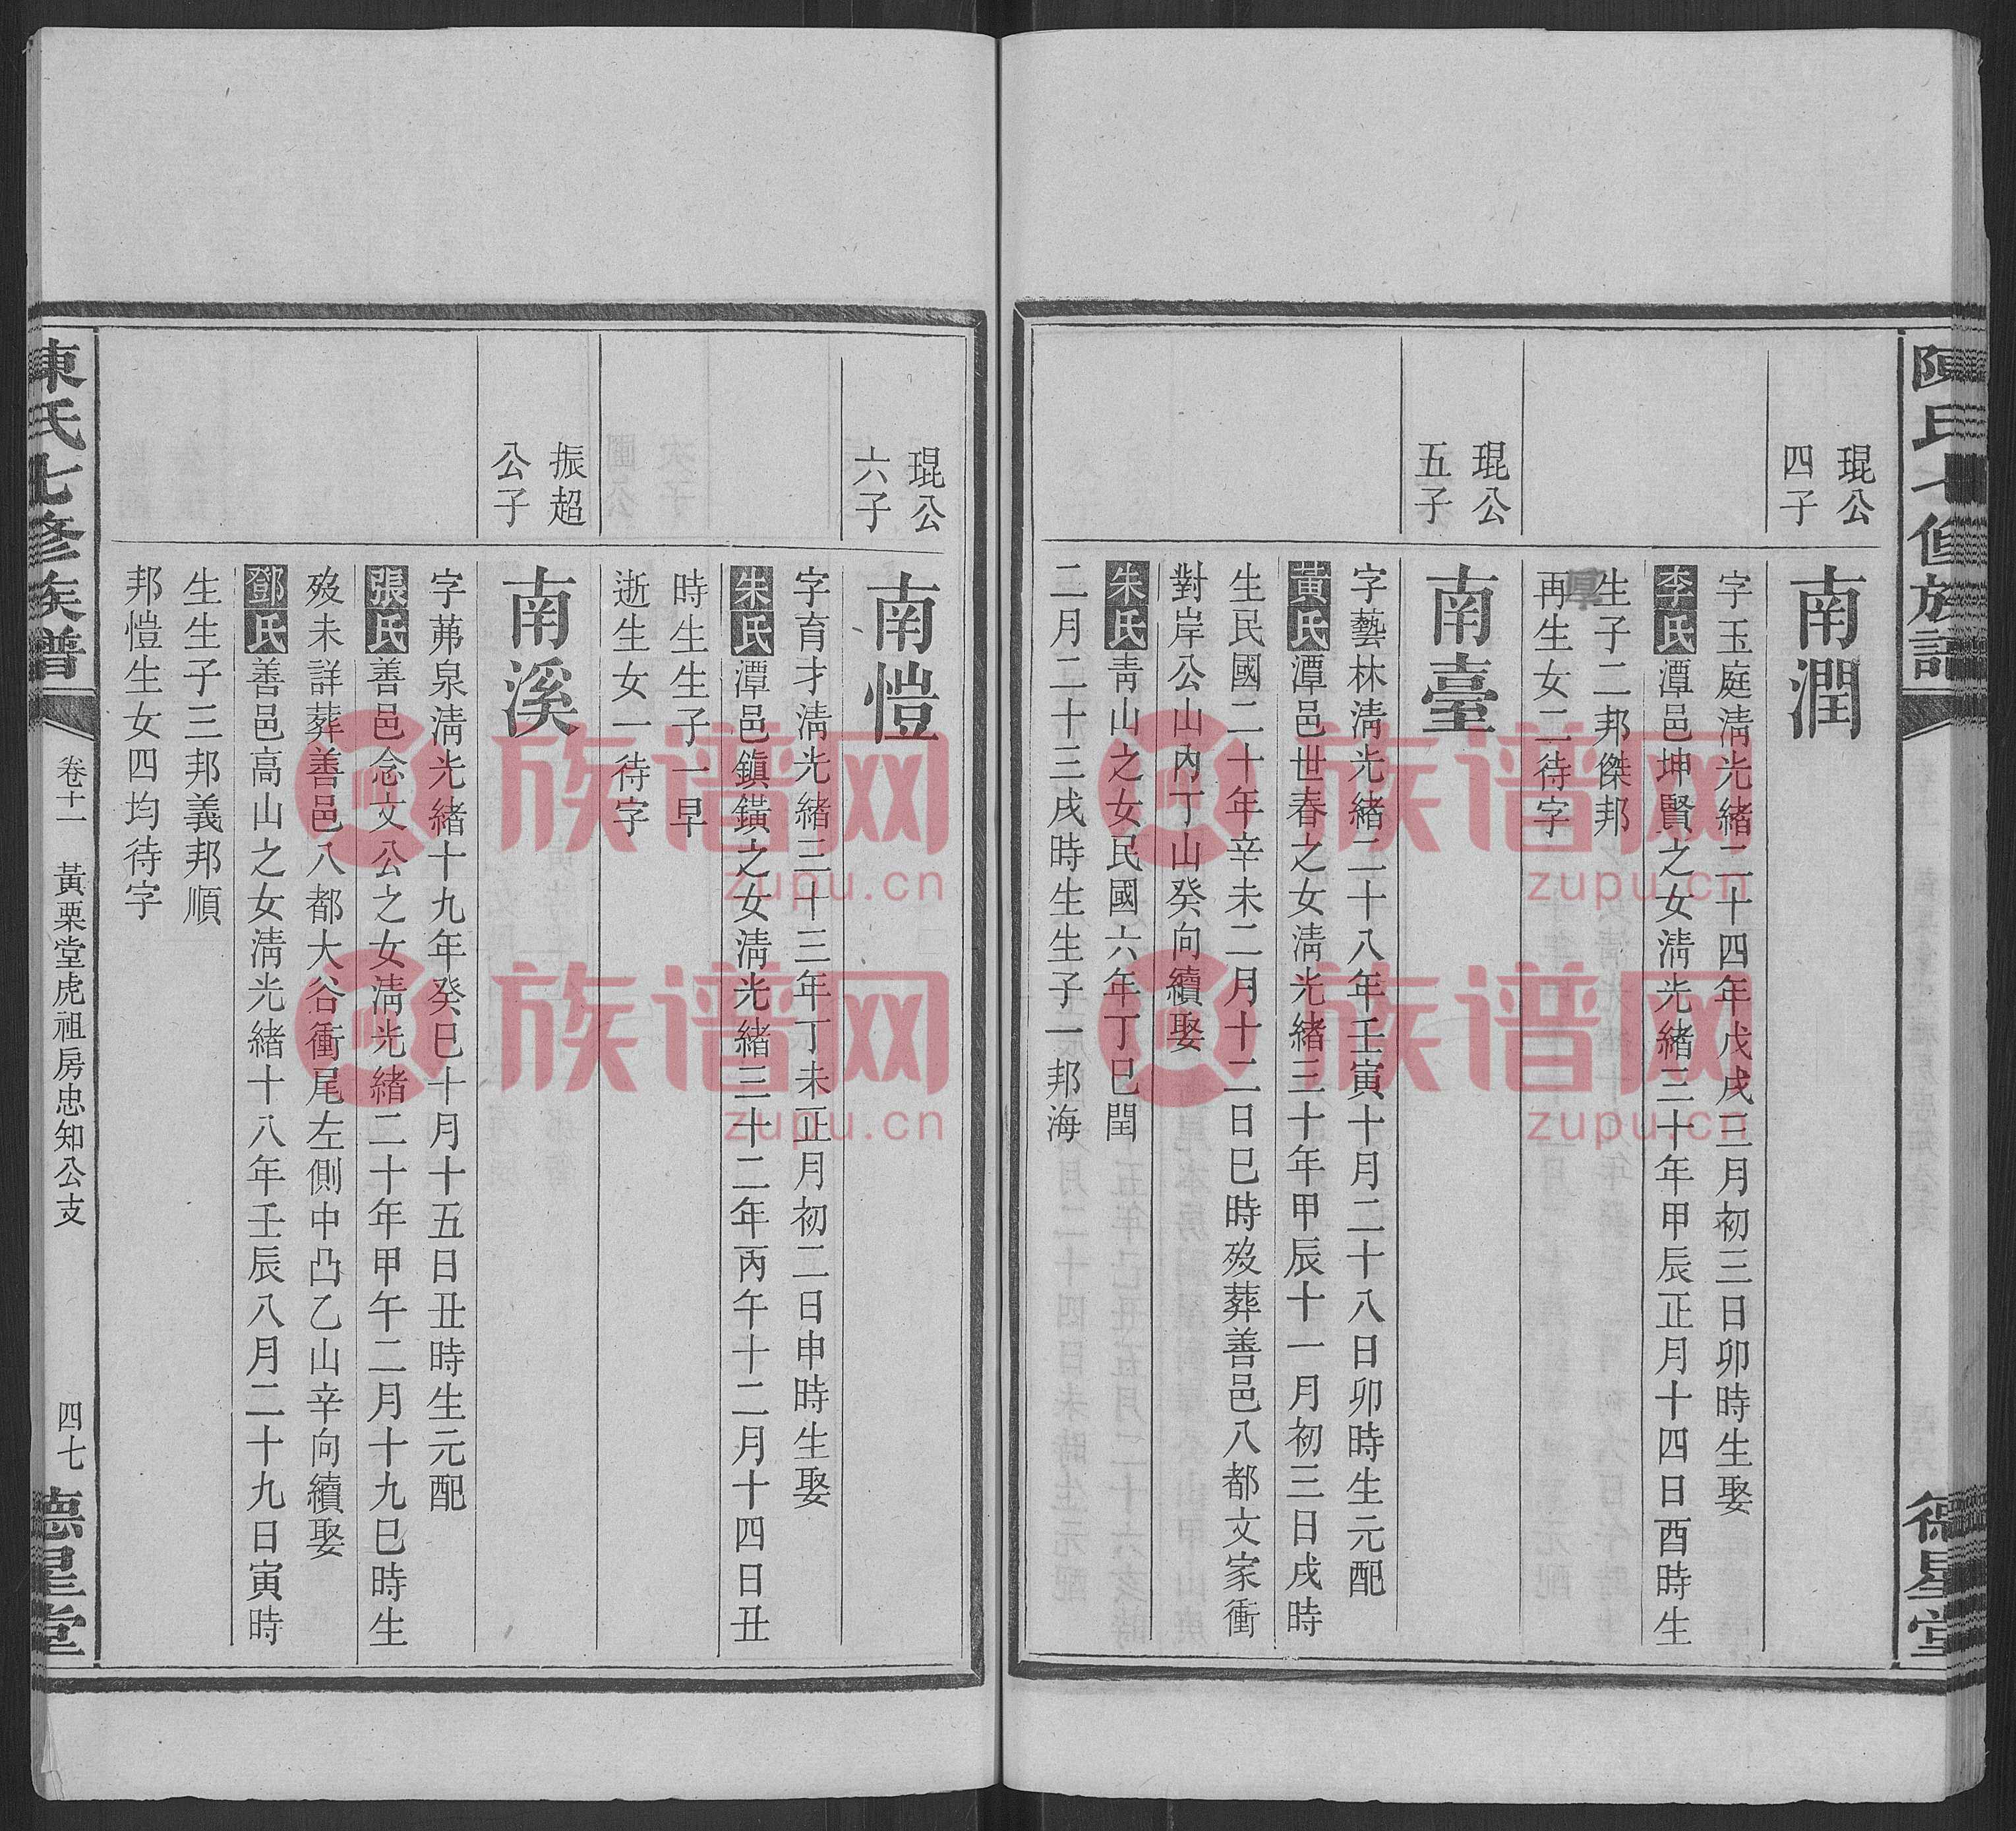 琨公
四子
南潤
字玉庭淸光緒二十四年戊戌二月初三日卯時生娶
李氏潭邑坤賢之女淸光緒三十年甲辰正月十四日酉時生
生子二邦傑邦
再生女二待字
琨公
五子
南臺
字藝林淸光緒二十八年壬寅十月二十八日卯時生元配
黃氏潭邑世春之女淸光緒三十年甲辰十一月初三日戌時
生民國二十年辛未二月十二日巳時歿葬善邑八都文家衝
對岸公山內丁山癸向續娶
朱氏靑山之女民國六年丁巳閏
二月二十三戌時生生子一邦海
琨公
六子
南愷
字育才淸光緒三十三年丁未正月初二日申時生娶
朱氏潭邑鎭鐄之女淸光緒三十二年丙午十二月十四日丑
時生生子一早
逝生女一待字
振超
公子
南溪
字茀泉淸光緒十九年癸巳十月十五日丑時生元配
張氏善邑念文公之女淸光緒二十年甲午二月十九巳時生
歿未詳葬善邑八都大谷衝尾左側中凸乙山辛向續娶
鄧氏善邑高山之女淸光緒十八年壬辰八月二十九日寅時
生生子三邦義邦順
邦愷生女四均待字
陳氏七修族譜
卷十一
黃栗堂虎祖房忠知公支
四七
德星堂
族谱网
zupu.cn
族谱网
zupu.cn
族谱网
zupu.cn
族谱网
zupu.cn